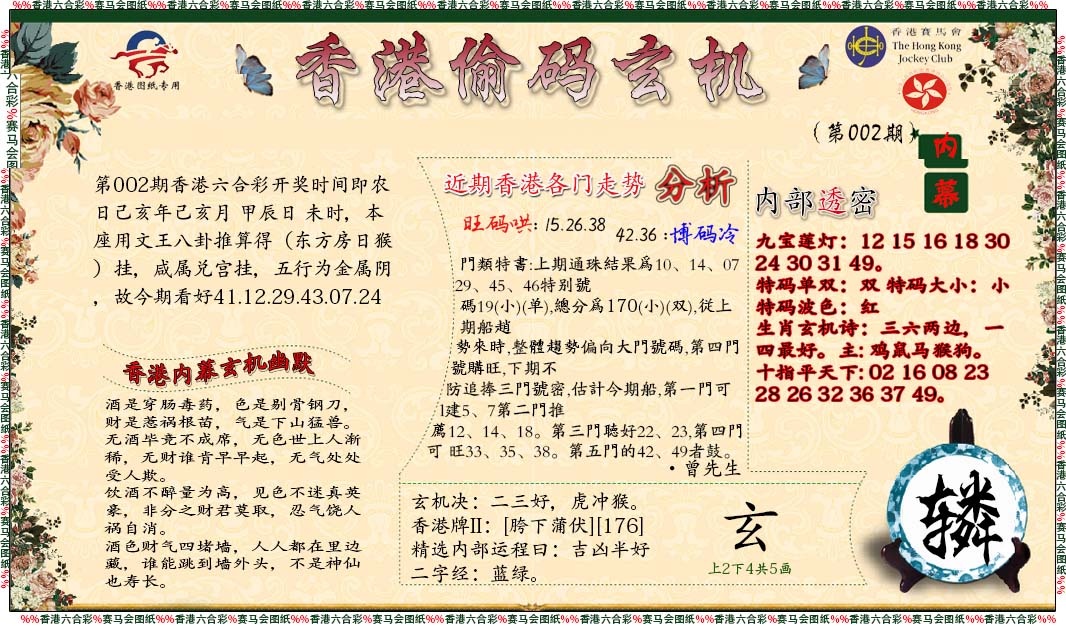 %%香港六合彩%赛马会图纸%%香港六合彩%赛马会图纸%%香港六合彩%赛马会图纸%%香港六合彩%赛马会图纸%%香港六合彩%赛马会图纸%%香港六合彩%赛马会图纸%%香港六合彩%%
香港图纸专用
香港偷码玄机
香港賽馬會
The Hong Kong
Jockey Club
(第002期)
内幕
第002期香港六合彩开奖时间即农
日己亥年己亥月 甲辰日 未时，本
座用文王八卦推算得（东方房日猴
）挂，咸属兑宫挂，五行为金属阴
，故今期看好41.12.29.43.07.24
香港内幕玄机幽默
酒是穿肠毒药，色是剔骨钢刀，
财是惹祸根苗，气是下山猛兽。
无酒毕竟不成席，无色世上人渐
稀，无财谁肯早早起，无气处处
受人欺。
饮酒不醉量为高，见色不迷真英
豪，非分之财君莫取，忍气饶人
祸自消。
酒色财气四堵墙，人人都在里边
藏，谁能跳到墙外头，不是神仙
也寿长。
近期香港各门走势 分析
旺码哄: 15.26.38
42.36 :博码冷
門類特書:上期通珠結果爲10、14、07
29、45、46特别號
碼19(小)(单),總分爲170(小)(双),從上
期船趙
勢來時,整體趨勢偏向大門號碼,第四門
號購旺,下期不
防追捧三門號密,估计今期船,第一門可
1建5、7第二門推
薦12、14、18。第三門聽好22、23,第四門
可 旺33、35、38。第五門的42、49者鼓。
·曾先生
玄机决：二三好，虎冲猴。
香港牌II：[胯下蒲伏][176]
精选内部运程曰：吉凶半好
二字经：蓝绿。
玄
上2下4共5画
内部透密
九宝莲灯：12 15 16 18 30
24 30 31 49。
特码单双：双 特码大小：小
特码波色：红
生肖玄机诗：三六两边，一
四最好。主: 鸡鼠马猴狗。
十指平天下: 02 16 08 23
28 26 32 36 37 49。
辚
%%香港六合彩%赛马会图纸%%香港六合彩%赛马会图纸%%香港六合彩%赛马会图纸%%香港六合彩%赛马会图纸%%香港六合彩%赛马会图纸%%香港六合彩%赛马会图纸%%香港六合彩%%